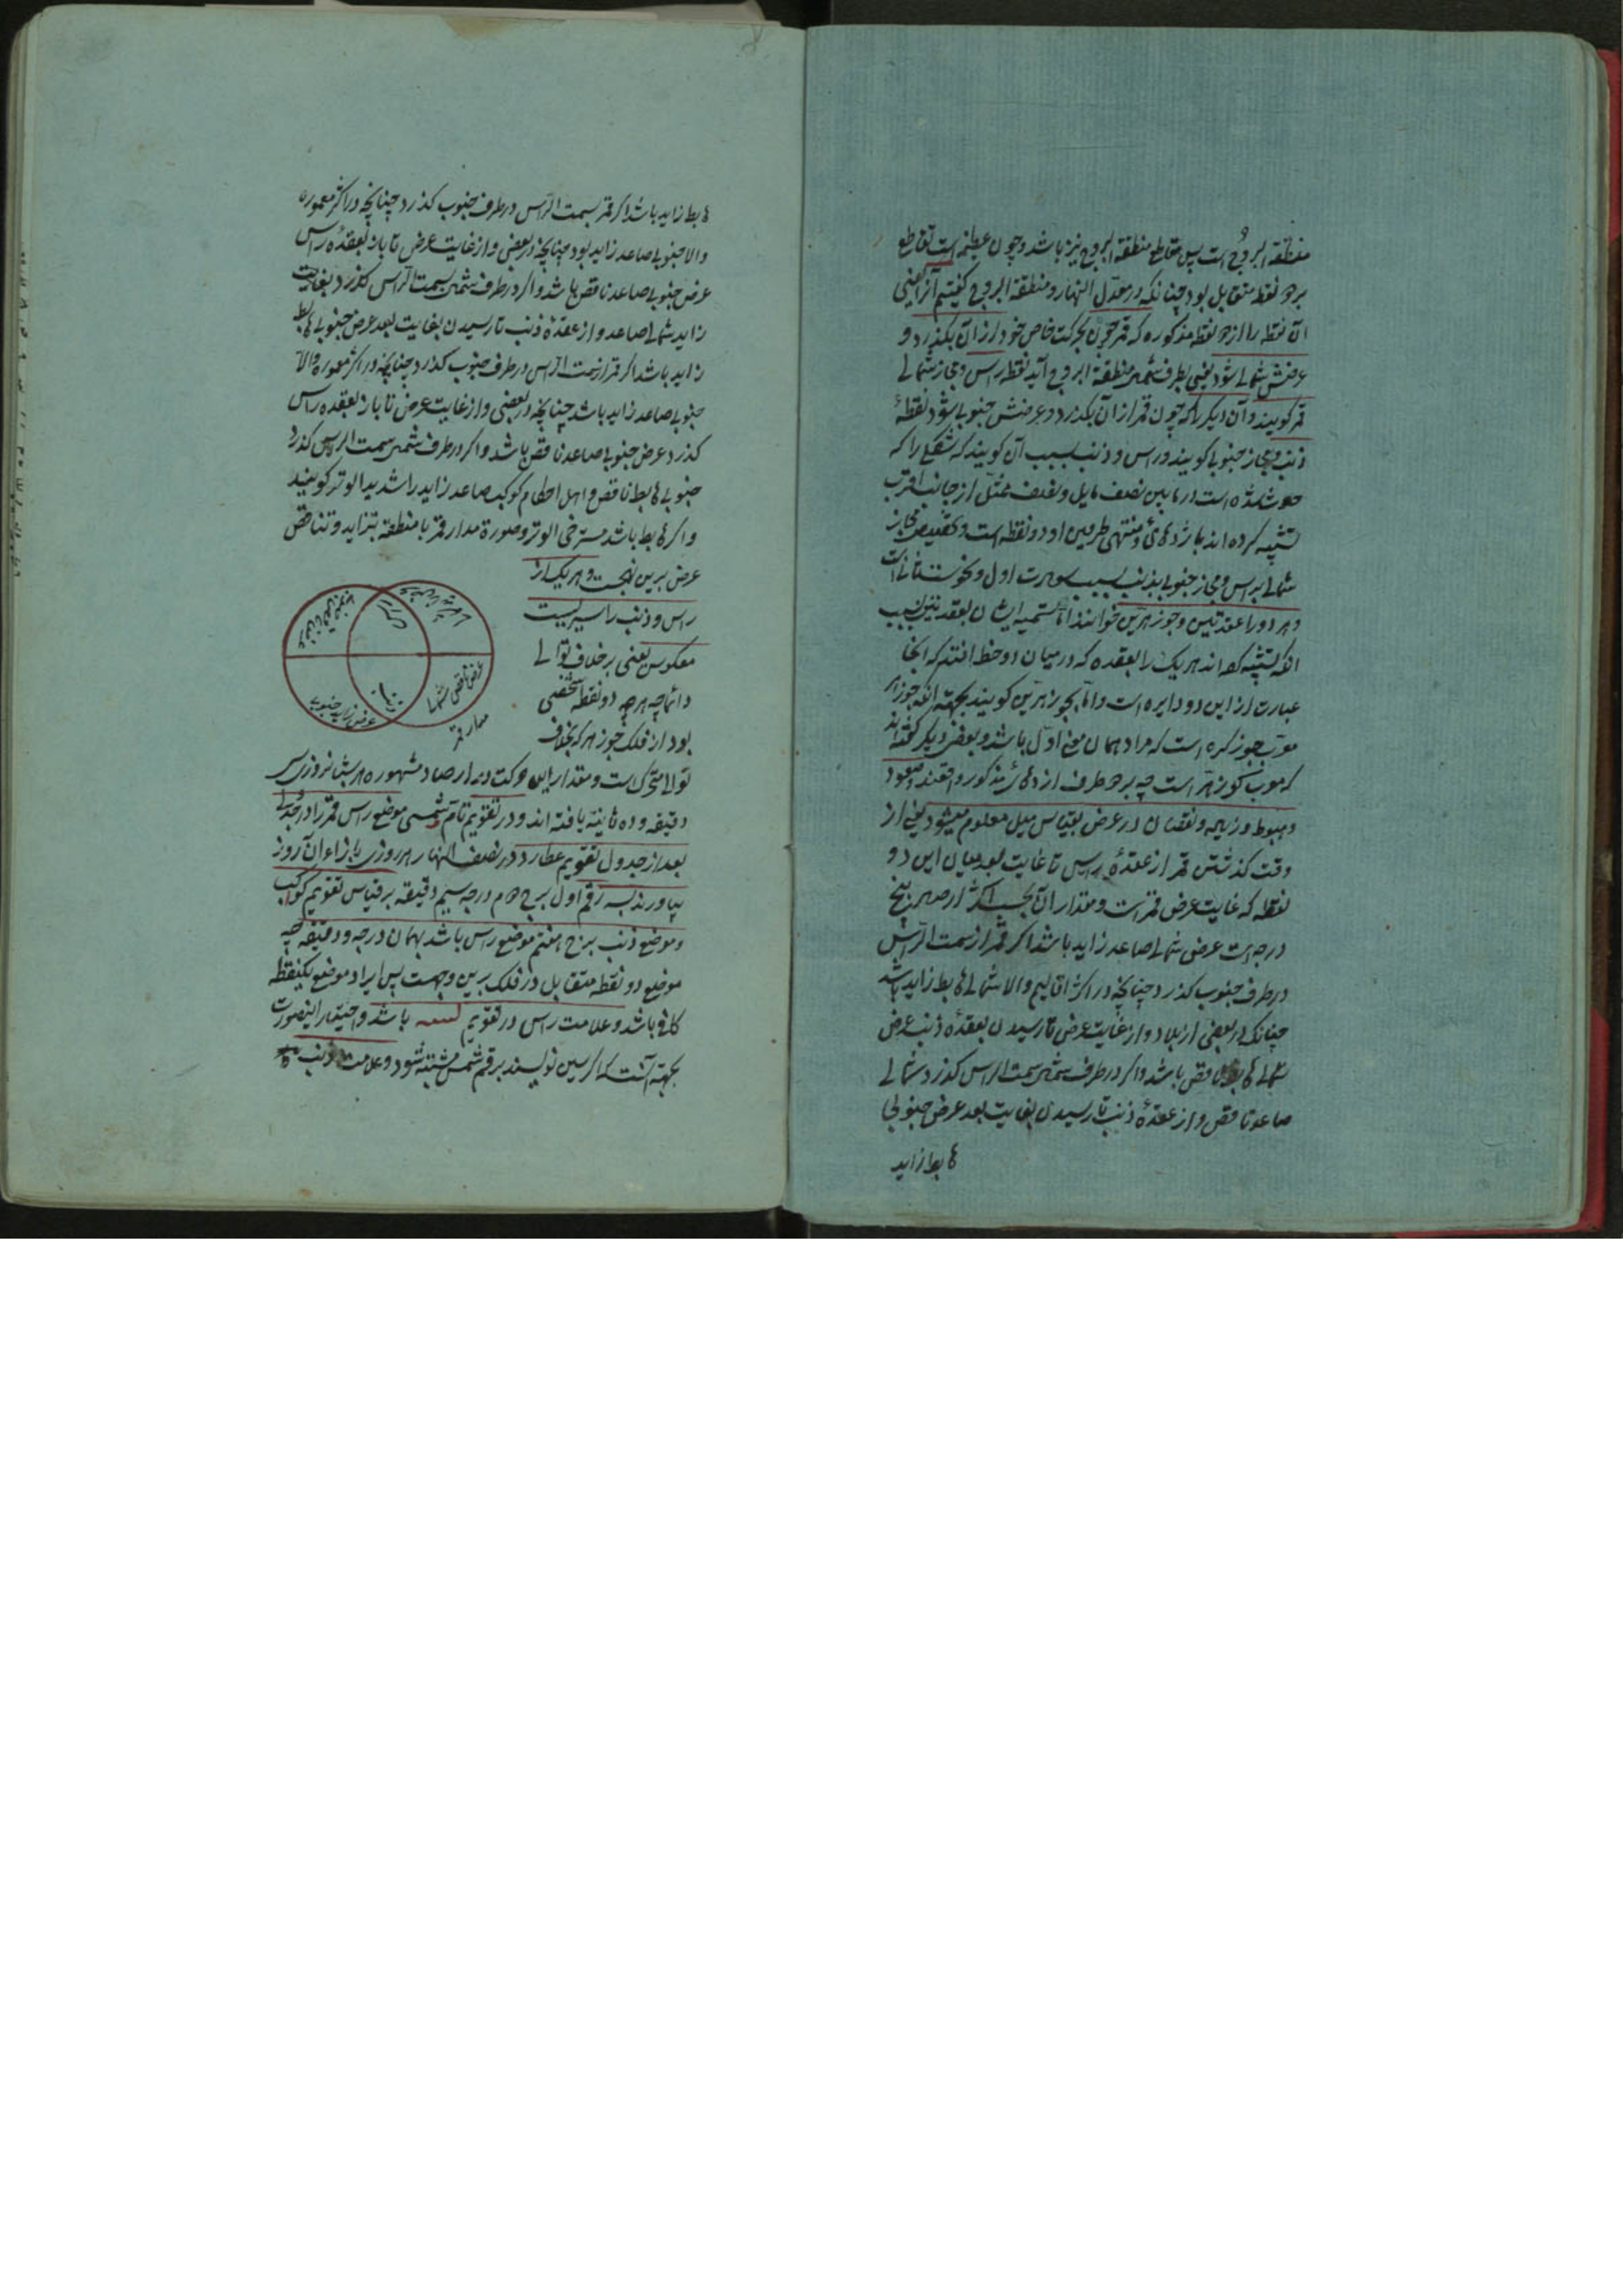 منطقة البروج است پس مقاطع منطقة البروج نیز باشد و چون عظیمه است تقاطع
بر دو نقطه متقابل بود چنانکه در معدل النهار و منطقة البروج گفتیم آنرا یعنی
آن نقطه را از دو نقطه مذکوره که قمر چون بحرکت خاص خود از آن بگذرد و
عرضش شمالی شود یعنی بطرف شمال منطقة البروج آید نقطه راس و مجاز شمالی
قمر گویند و آن دیگر را که چون قمر از آن بگذرد و عرضش جنوبی شود نقطهٔ
ذنب و مجاز جنوبی گویند و راس و ذنب بسبب آن گویند که شکلی را که
حادث شده است در مابین نصف مایل و نصف ممثل از جانب اقرب
تشبیه کرده اند باژدهائی و منتهی طرفین او دو نقطه است و تخصیص مجاز
شمالی براس و مجاز جنوبی بذنب بسبب
و هر دو را عقدتین و جوزهرین خوانند اما تسمیه ایشان بعقدتین بسبب
آنکه تشبیه کرده اند هر یک را بعقده که در میان دو خط افتد که اینجا
عبارت از این دو دایره است و اما بجوزهرین گویند بجهة آنکه جوزهر
معرب جوزگره است که مراد همان معنی اول باشد و بعضی دیگر گفته اند
که معرب گوزهر است چه بر دو طرف اژدهای مذکور واقعند و صعود
و هبوط و زیاده و نقصان در عرض بقیاس میل معلوم میشود یعنی از
وقت گذشتن قمر از عقدهٔ راس تا غایت بعد میان این دو
نقطه که غایت عرض قمر است و مقدار آن بحسب اکثر ارصاد پنج
درجه است عرض شمالی صاعد زاید باشد اگر قمر از سمت الراس
در طرف جنوب گذرد چنانچه در اکثر اقالیم و الا شمالی هابط زاید باشد
چنانکه در بعضی از بلاد و از غایت عرض تا رسیدن بعقدهٔ ذنب عرض
شمالی هابط ناقص باشد و اگر در طرف شمال سمت الراس گذرد شمالی
صاعد ناقص و از عقدهٔ ذنب تا رسیدن بغایت بعد عرض جنوبی
هابط زاید
هابط زاید باشد اگر قمر بسمت الراس در طرف جنوب گذرد چنانچه در اکثر معموره
والا جنوبی صاعد زاید بود چنانچه در بعضی و از غایت عرض تا باز بعقدهٔ راس
عرض جنوبی صاعد ناقص باشد و اگر در طرف شمال سمت الراس گذرد بغایت
زاید شمالی صاعد و از عقدهٔ ذنب تا رسیدن بغایت بعد عرض جنوبی هابط
زاید باشد اگر قمر از سمت الراس در طرف جنوب گذرد چنانچه در اکثر معموره والا
جنوبی صاعد زاید باشد چنانچه در بعضی و از غایت عرض تا باز بعقده راس
گذرد عرض جنوبی صاعد ناقص باشد و اگر در طرف شمال سمت الراس گذرد
جنوبی هابط ناقص و اهل احکام کوکب صاعد زاید را شدید الوتر گویند
و اگر هابط باشد مسترخی الوتر و صورة مدار قمر با منطقه بتزاید و تناقص
عرض برین نهجست و هر یک از
راس و ذنب را سیریست
معکوس یعنی بر خلاف توالی
دائما چه هر چه دو نقطه شخصی
بود از فلک جوزهر که بخلاف
الراس
عرض ناقص شمالی
ذنب
عرض زاید جنوبی
مدار قمر
توالی متحرک است و مقدار این حرکت در ارصاد مشهوره هر شبانروزی سه
دقیقه و ده ثانیه یافته اند و در تقویم تام شمسی موضع راس قمر را در جدولی
بعد از جدول تقویم عطارد در نصف النهار هر روزی بازاء آن روز
بیاورند بسه رقم اول برج دوم درجه سیم دقیقه بر قیاس تقویم کواکب
و موضع ذنب برج هفتم موضع راس باشد بهمان درجه و دقیقه چه
موضع دو نقطه متقابل در فلک برین وجهست پس ایراد موضع یکنقطه
کافی باشد و علامت راس در تقویم باشد و اختیار اینصورت
بجهة آنست که اگر سین نویسند برقم شمس مشتبه شود و علامت ذنب